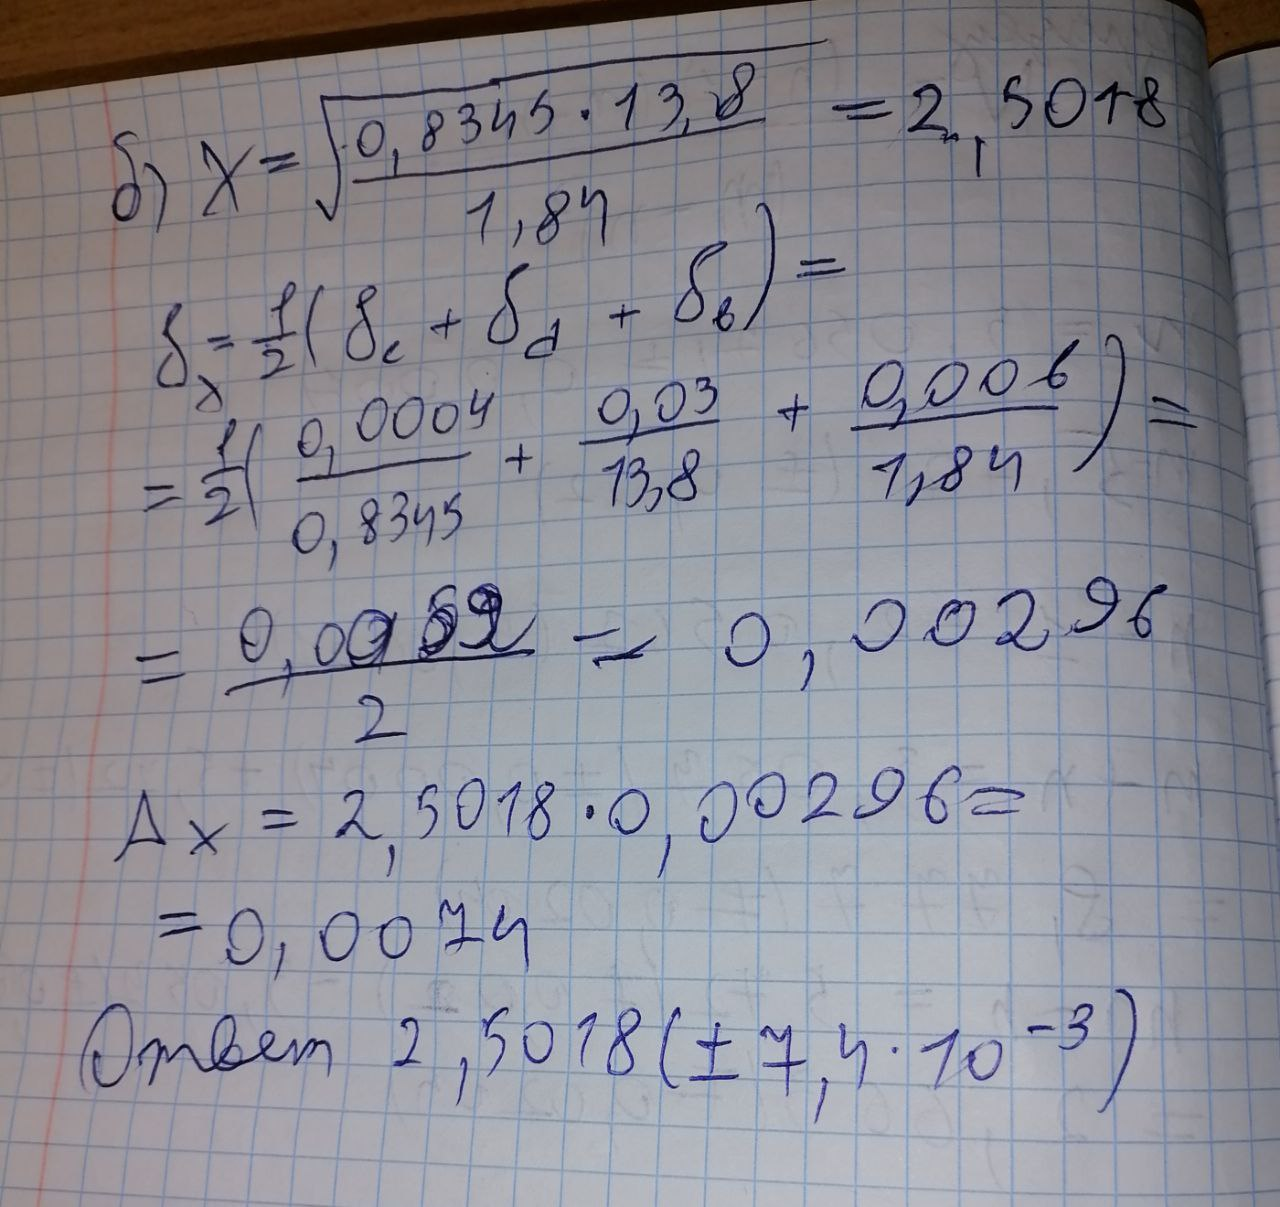 б) X = √(0,8345 · 13,8 / 1,84) = 2,5018
δx = 1/2 (δc + δd + δв) =
= 1/2 (0,0004 / 0,8345 + 0,03 / 13,8 + 0,006 / 1,84) =
= / 2 = 0,00296
Δx = 2,5018 · 0,00296 =
= 0,0074
Ответ 2,5018 (± 7,4 · 10⁻³)